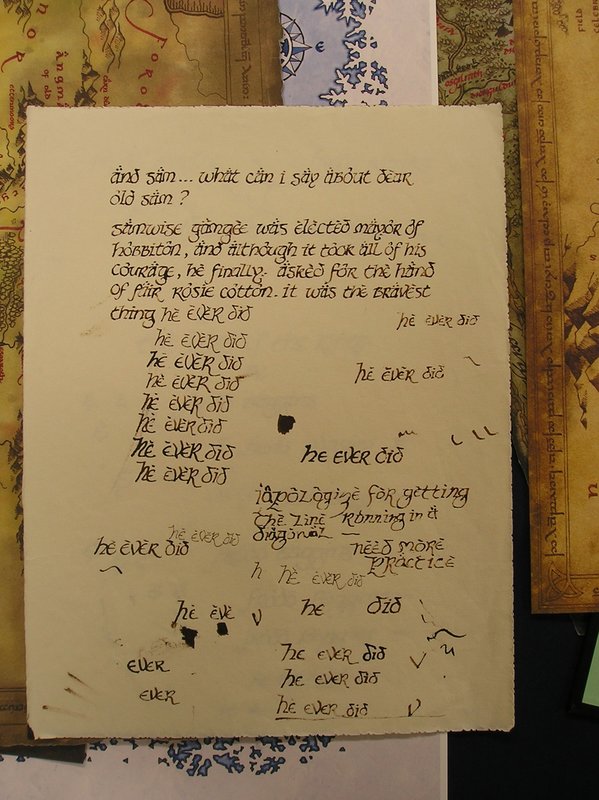 and sam... what can i say about dear
old sam?
samwise gamgee was elected mayor of
hobbiton, and although it took all of his
courage, he finally. asked for the hand
of fair rosie cotton. it was the bravest
thing he ever did
he ever did
he ever did
he ever did
he ever did
he ever did
he ever did
he ever did
he ever did
he ever did
he ever did
he ever did
i apologize for getting
the line running in a
diagonal —
need more
practice
he ever did
he ever did
h he ever did
he eve v
he did
ever
ever
he ever did v
he ever did
he ever did v